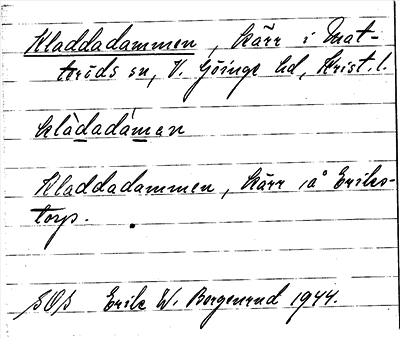 Kladdadammen, kärr i Mat-
teröds sn, V. Göinge hd, Krist. l.
klàdadámen
Kladdadammen, kärr å Eriks-
torp.
SOS Erik W. Borgenrud 1944.